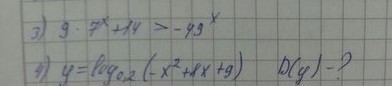 3) 9 · 7ˣ + 14 > -49ˣ
4) y = log₀,₂ (-x² + 8x + 9) D(y) - ?